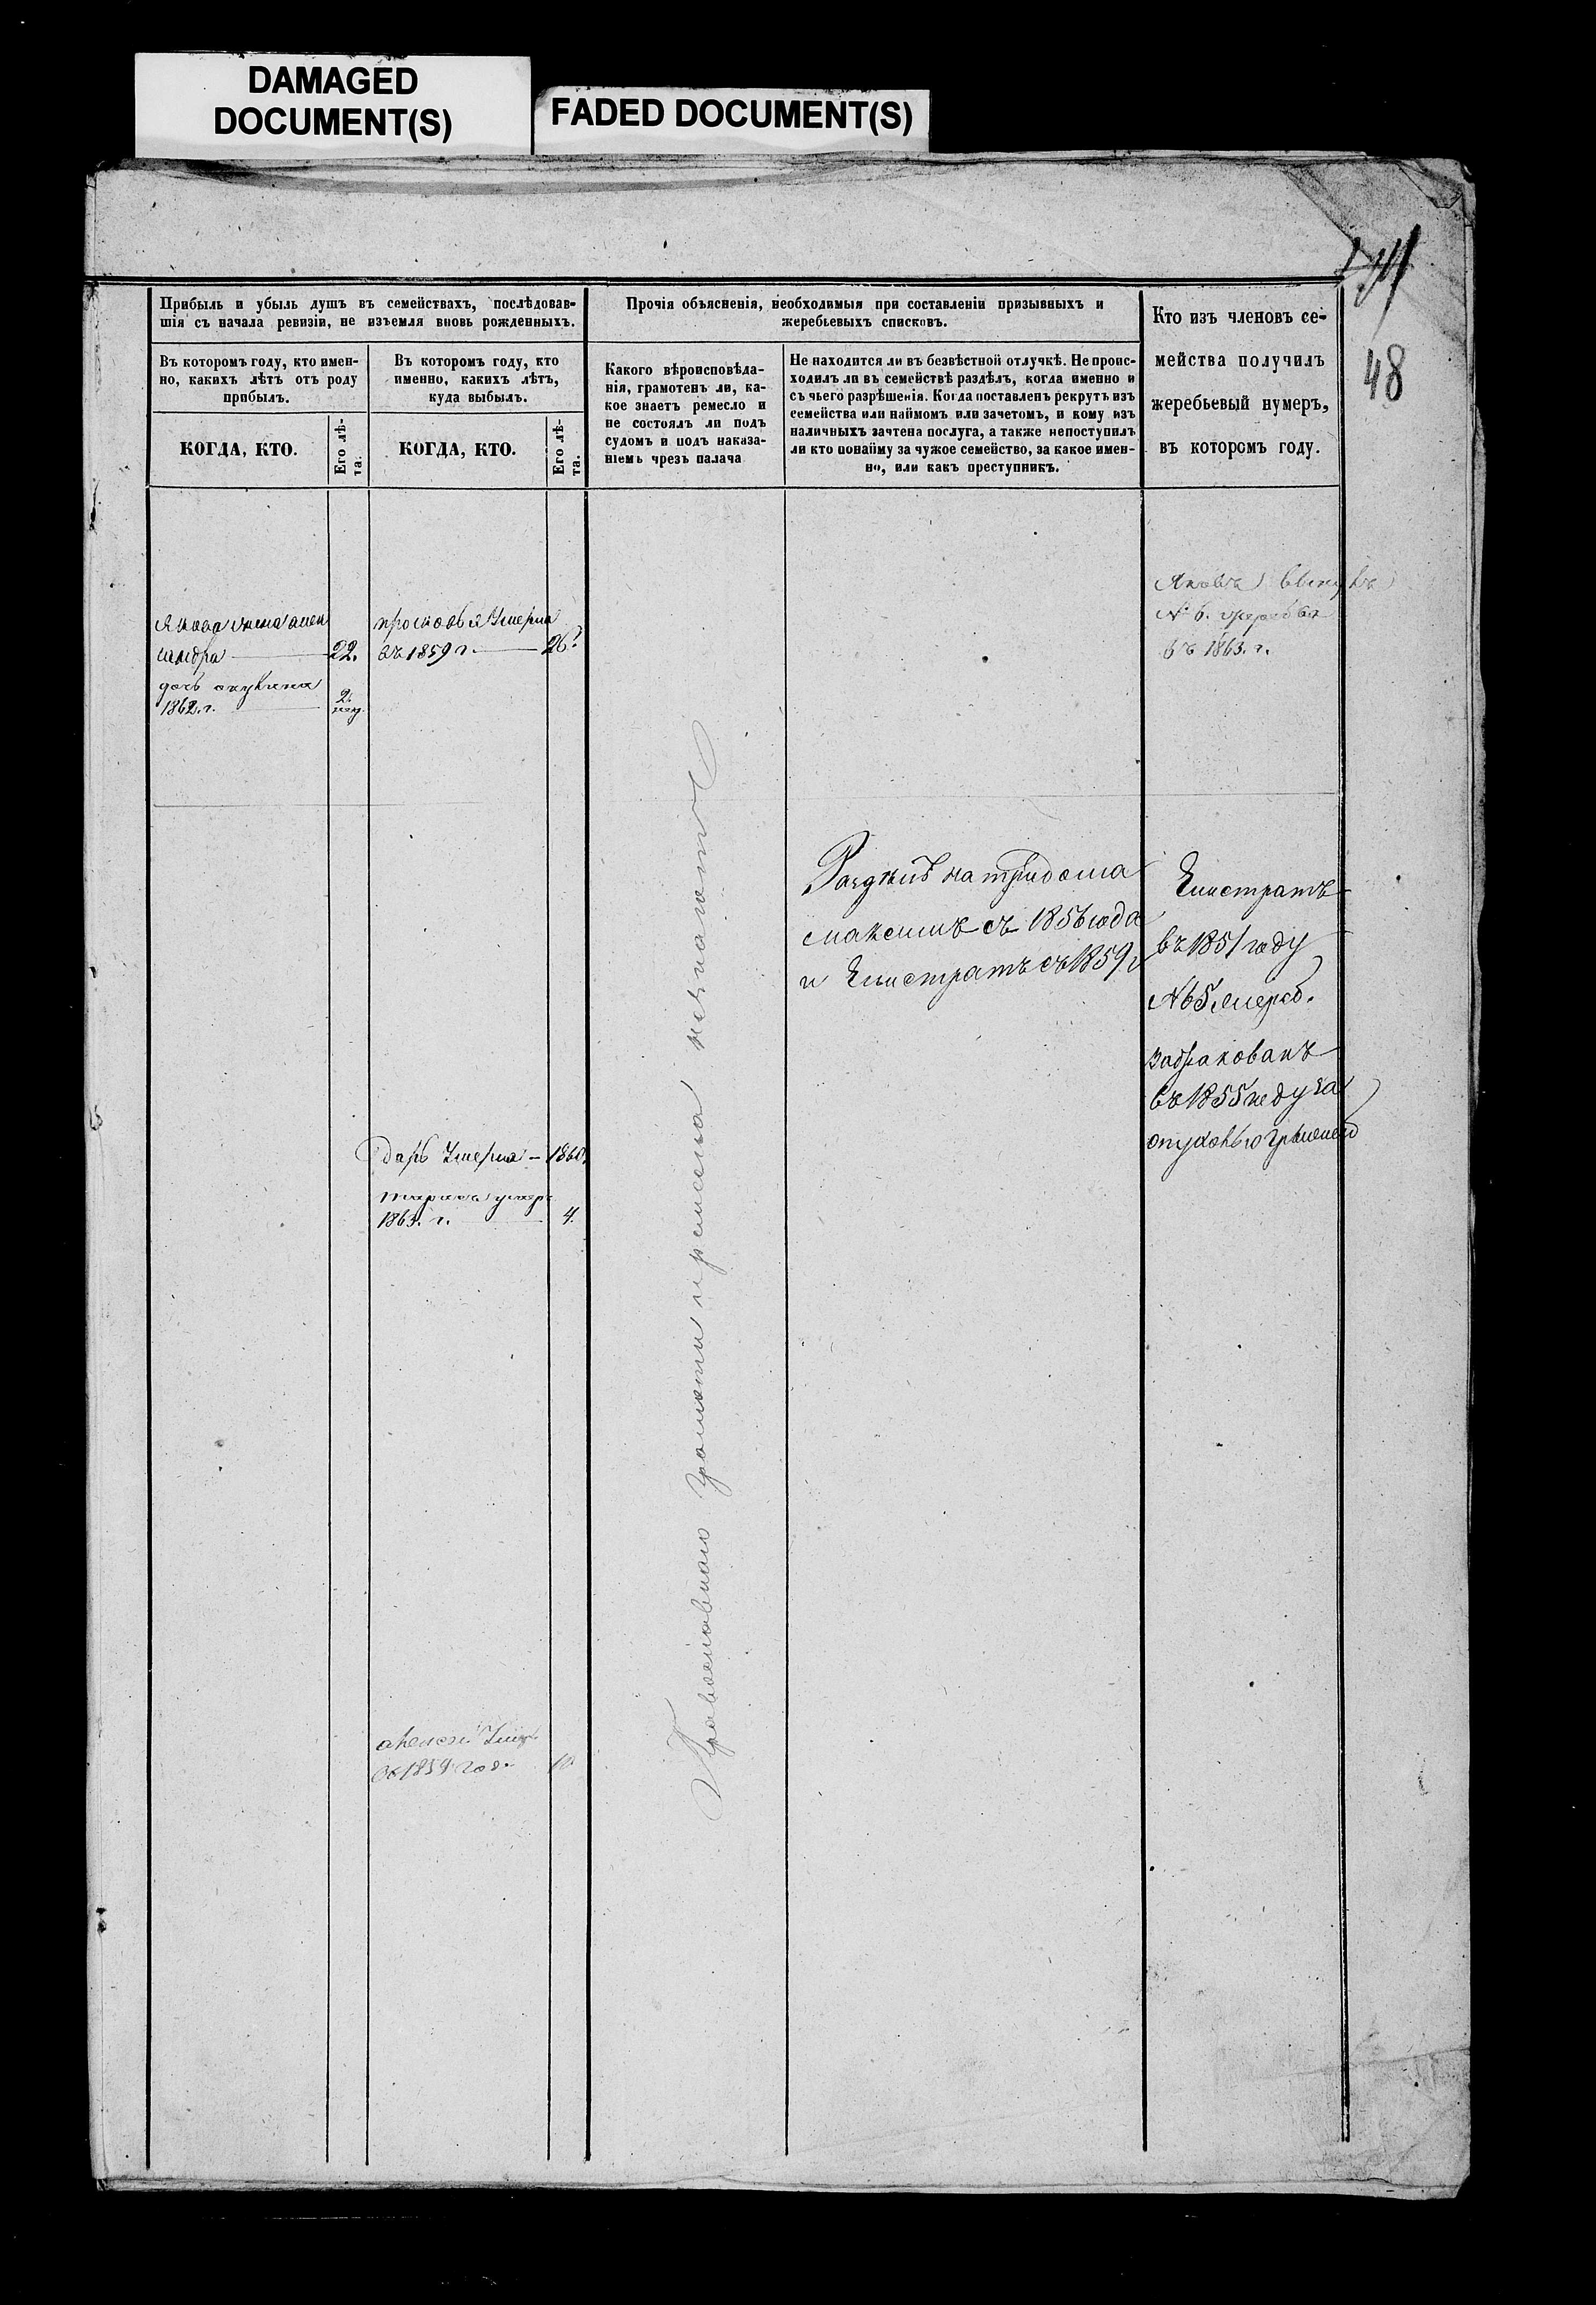 DAMAGED
DOCUMENT(S)
FADED DOCUMENT(S)
48
Прибыль и убыль душъ въ семействахъ, послѣдовав-
шія съ начала ревизіи, не изъемля вновь рожденныхъ.
Прочія объясненія, необходимыя при составленіи призывныхъ и
жеребьевыхъ списковъ.
Кто изъ членовъ се-
мейства получилъ
жеребьевый нумеръ,
въ которомъ году.
Въ которомъ году, кто имен-
но, какихъ лѣтъ отъ роду
прибылъ.
Въ которомъ году, кто
именно, какихъ лѣтъ,
куда выбылъ.
Какого вѣроисповѣда-
нія, грамотенъ ли, ка-
кое знаетъ ремесло и
не состоялъ ли подъ
судомъ и подъ наказа-
ніемъ чрезъ палача
Не находится ли въ безвѣстной отлучкѣ. Не проис-
ходилъ ли въ семействѣ раздѣлъ, когда именно и
съ чьего разрѣшенія. Когда поставленъ рекрутъ изъ
семейства или наймомъ или зачетомъ, и кому изъ
наличныхъ зачтена послуга, а также непоступилъ
ли кто понайму за чужое семейство, за какое имен-
но, или какъ преступникъ.
КОГДА, КТО.
Его лѣ-
та.
КОГДА, КТО.
Его лѣ-
та.
Якова жена алек
сандра 22.
дочь акулина
1862. г. 2. нед.
просковья Умерла
въ 1859 г. 26.
Яковъ
№ 6. жеребья
въ 1863. г.
Раздѣлъ на три дома
максимъ съ 1856 года
и Елистратъ съ 1859 г
Елистратъ
въ 1851 году
№ 65 жереб.
Забракованъ
въ 1855 году за
опухолью
дарь Умерла – 1860.
тарасъ умеръ
1863. г. 4.
Умер
1859 год. 10
Православнаго грамоти и ремесла незнаютъ